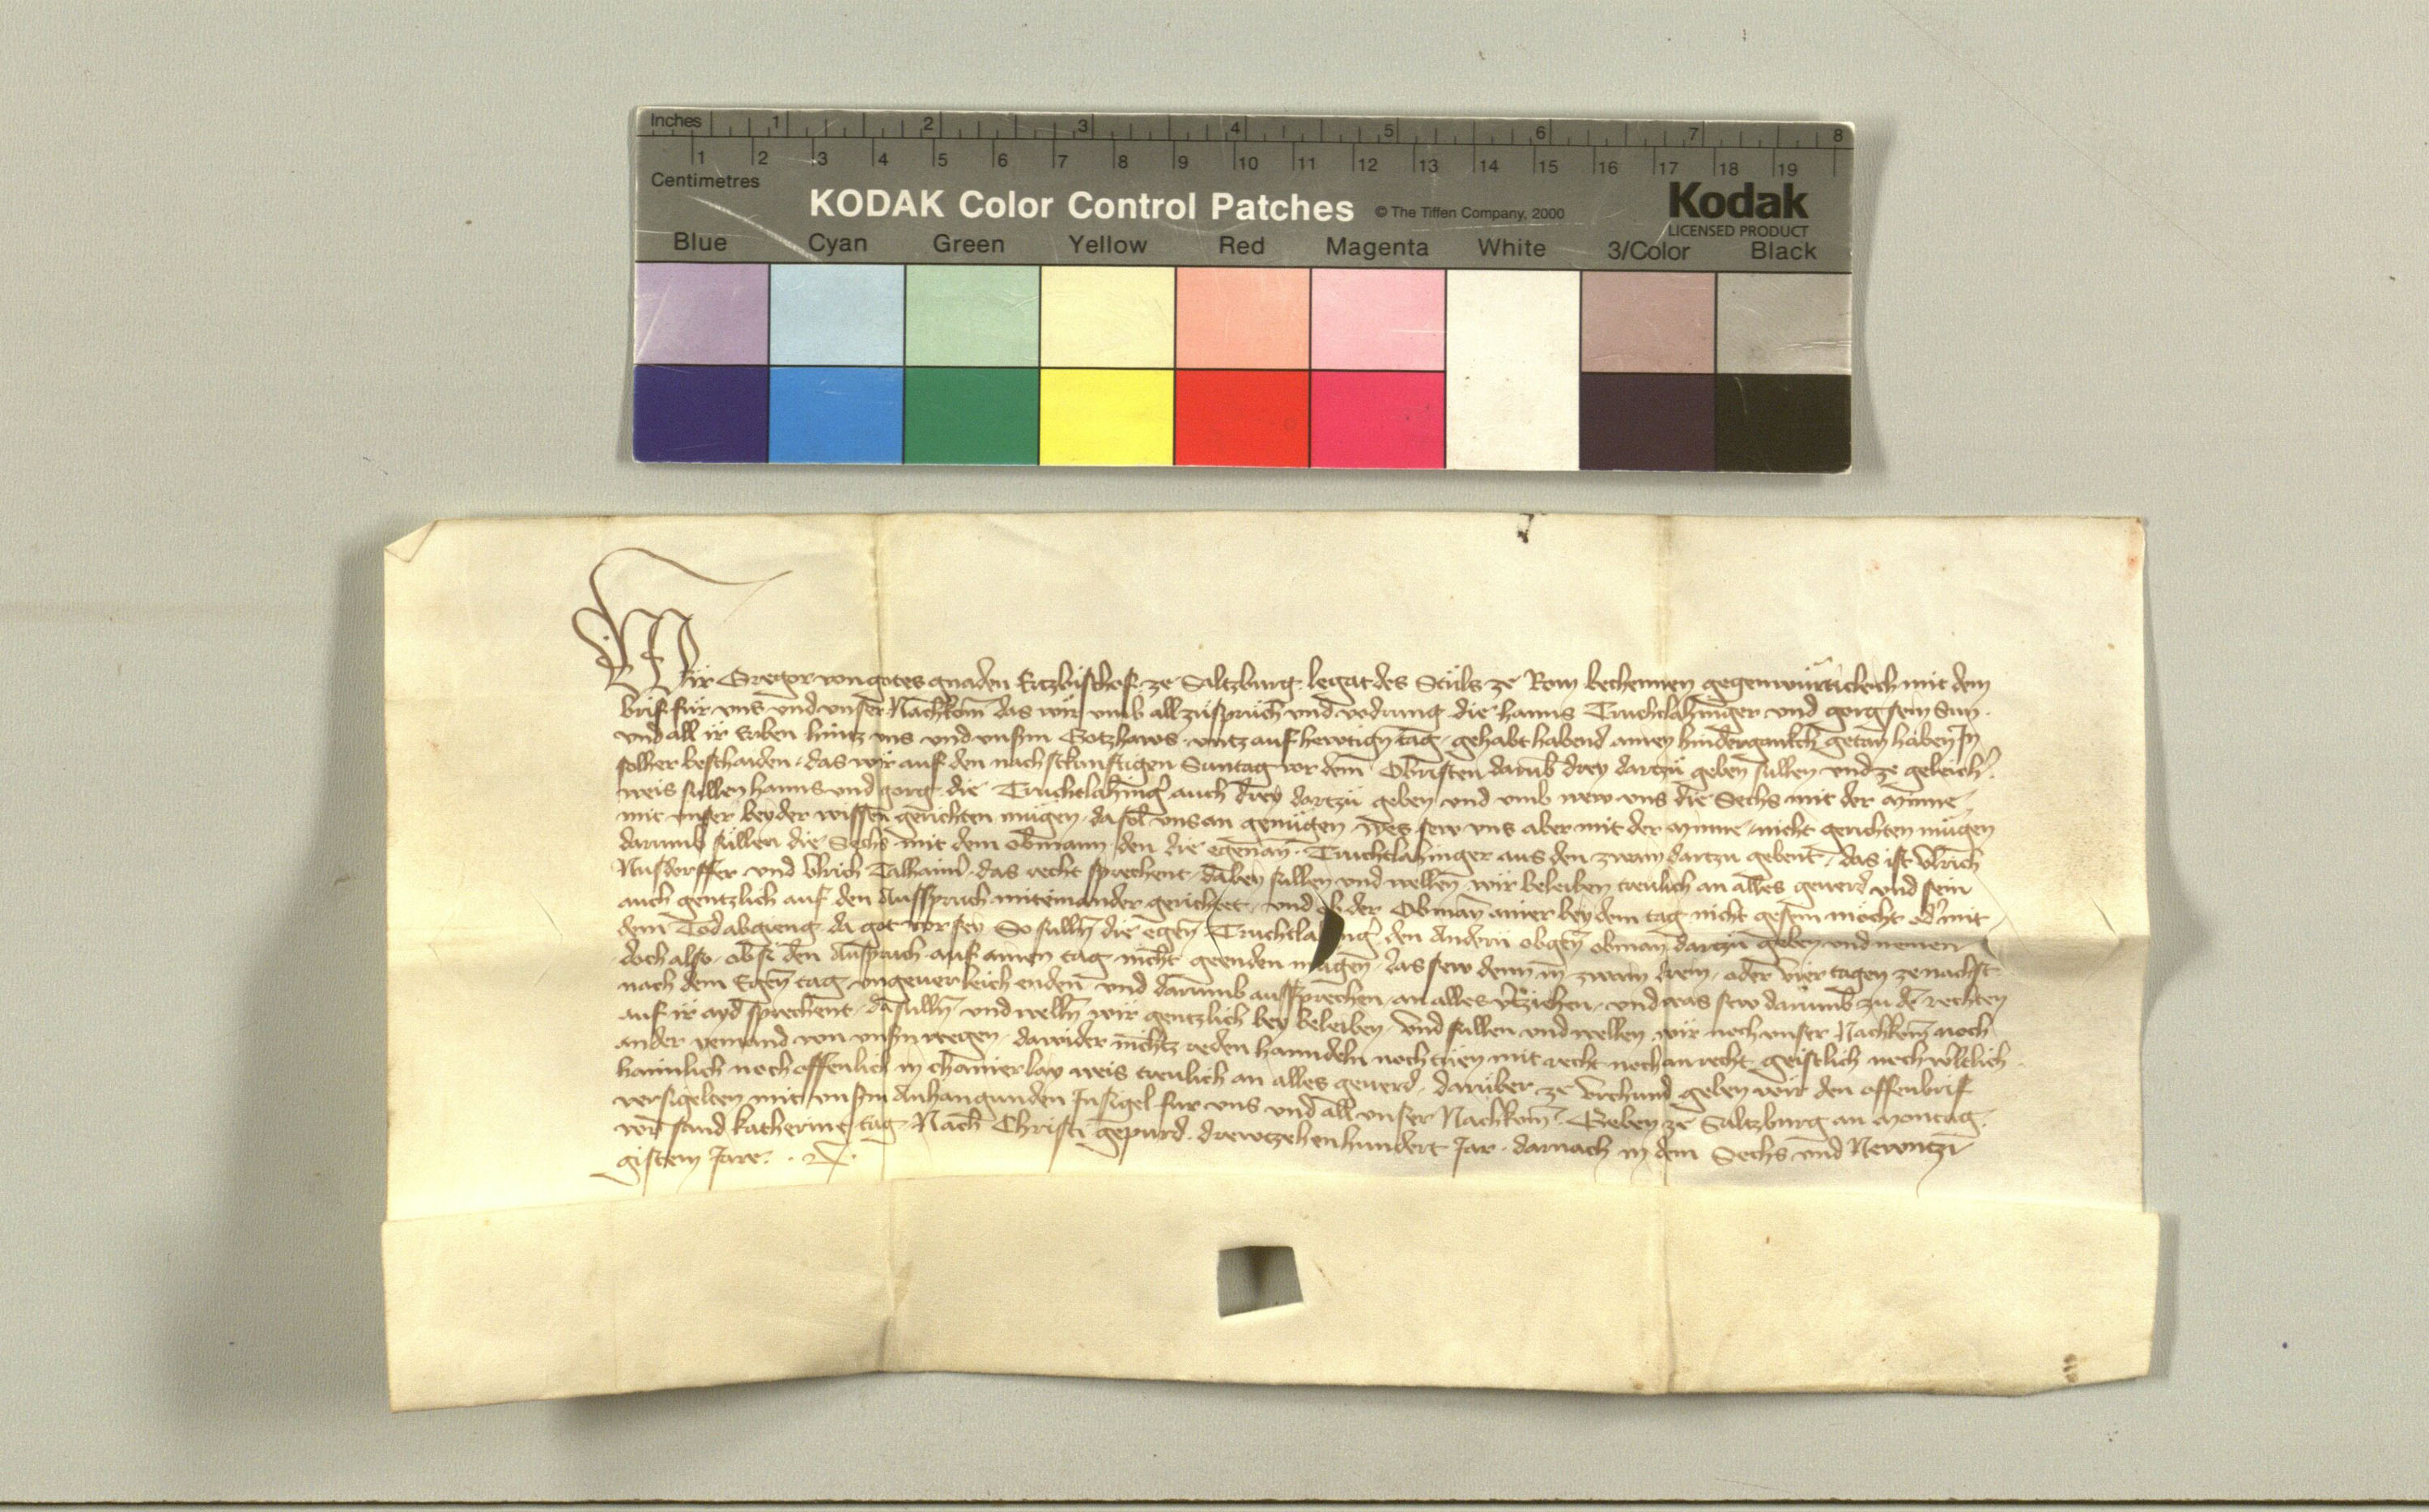 Inches 1 2 3 4 5 6 7 8
1 2 3 4 5 6 7 8 9 10 11 12 13 14 15 16 17 18 19
Centimetres
KODAK Color Control Patches © The Tiffen Company, 2000 Kodak
LICENSED PRODUCT
Blue Cyan Green Yellow Red Magenta White 3/Color Black
Wir Gregor von gotes gnaden Ertzbischof ze Saltzburg legat des Stuls ze Rom bechennen gegenwurticleich mit dem
brif fur vns vnd vnser Nachkom̄ das wir vmb all zuspruch vnd vodrung die hanns Truchtlahinger vnd gorg sein Sun
vnd all ir Erben hintz vns vnd vnserm Gotzhaws vntz auf hewtign̄ tag gehabt habend ainen hindergankch getan haben In
solher beschaiden das wir auf den nachstkunftigen Suntag vor dem Obristen darūb drey dartzu geben sullen vnd ze geleich̄
weis sullen hanns vnd gorg die Truchtlahinḡ auch drey dartzu geben vnd vmb wew vns die Sechs mit der mynne
mit vnser beyder wissen gerichten mugen da sol vns an genugen wes sew vns aber mit der mynne nicht gerichten mugen
darumb sullen die Sechs mit dem obmann den die egenan̄ Truchtlahinger aus den zwain dartzu gebent das ist Vlrich
Nusdorffer vnd Vlrich Talhaim̄ das recht sprechent dabey sullen vnd wellen wir beleiben trewlich an alles geuerd vnd sein
auch gentzlich auf den Ausspruch miteinander gerichtet vnd ob der Obman ainer bey dem tag nicht gesein mocht od̄ mit
dem Tod abgieng da got vor sey So sulln̄ die egen̄ Truchtlahinḡ den Andern obgen̄ obman dartzu geben vnd nemen
doch also ob si den Ausspruch auf ainen tag nicht geenden mugen das sew denn in zwain drein oder vier tagen ze nachst
nach dem Egen̄ tag vngeuerleich enden vnd darumb aussprechen an alles v̄tziehen vnd was sew darumb zu dē rechten
auf ir ayd sprechent da sulln̄ vnd welln̄ wir gentzlich bey beleiben vnd sullen vnd wellen wir noch vnser Nachkom̄ noch
ander yemand von vnsern wegen dawider nichtz reden hanndeln noch tuen mit recht noch an recht geistlich noch w̄ltlich
haimlich noch offenlich in chainerlay weis trewlich an alles geuerd daruber ze vrchund geben wir den offenbrif
versigelten mit vnserm Anhangunden Insigel fur vns vnd all vnser Nachkom̄ Geben ze Saltzburg an Montag
vor sand katherine tag Nach Christi gepurd drewtzehenhundert Jar darnach in dem Sechs vnd Newntzi
gistem Jare